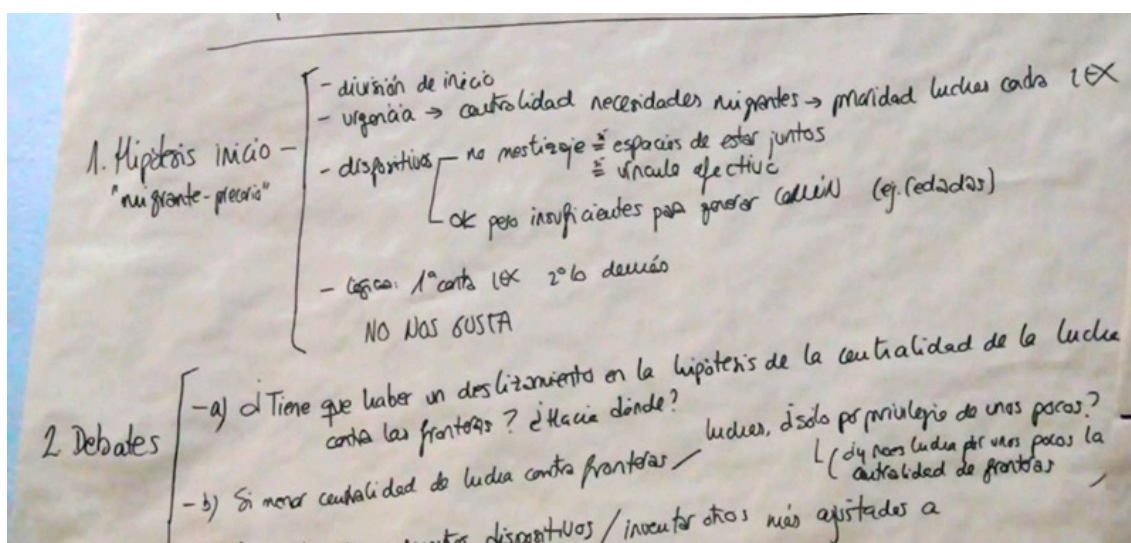 - división de inicio
- urgencia → centralidad necesidades migrantes → prioridad luchas contra LEX
1. Hipótesis inicio -
"migrante-precario"
- dispositivos - no mestizaje = espacios de estar juntos
= vínculo afectivo
ok pero insuficientes para generar común (ej. redadas)
- Lógica: 1º contra LEX 2º lo demás
NO NOS GUSTA
2. Debates
-a) ¿Tiene que haber un deslizamiento en la hipótesis de la centralidad de la lucha
contra las fronteras? ¿Hacia dónde?
-b) Si menor centralidad de lucha contra fronteras / luchas, ¿sólo por privilegio de unos pocos?
(¿y no es lucha por unos pocos la
centralidad de fronteras
dispositivos / inventar otros más ajustados a